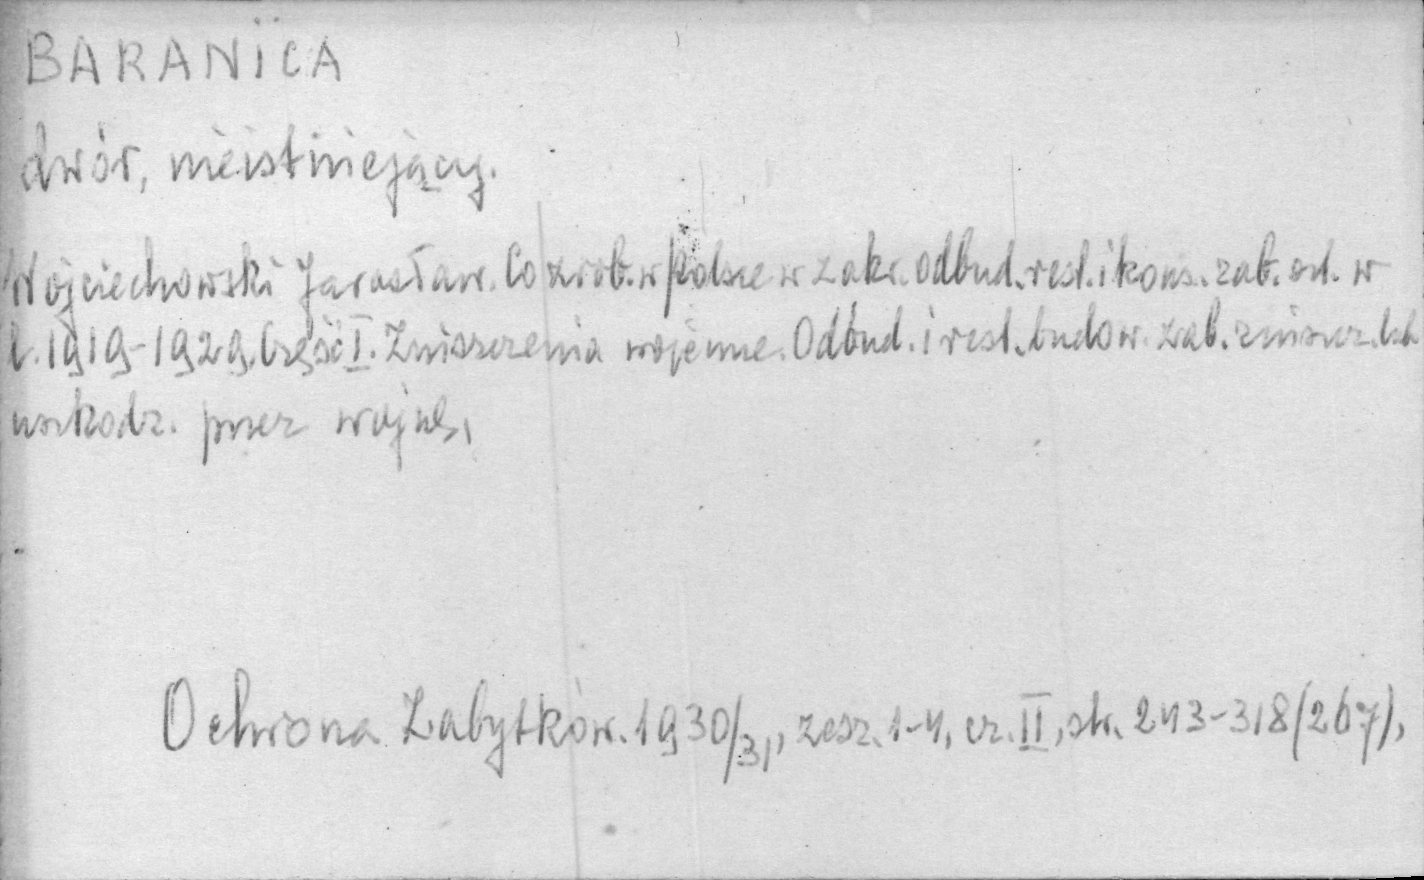 BARANICA
dwór, nieistniejący.
Wojciechowski Jarosław. Co zrob. w Polsce w zakr. odbud. rest. i kons. zab. od. w
l. 1919-1929, Część I. Zniszczenia wojenne. Odbud. i rest. budow. zab. zniszcz. lub
uszkodz. przez wojnę,
Ochrona Zabytków. 1930/31, zesz. 1-4, cz. II, str. 243-318 (267),